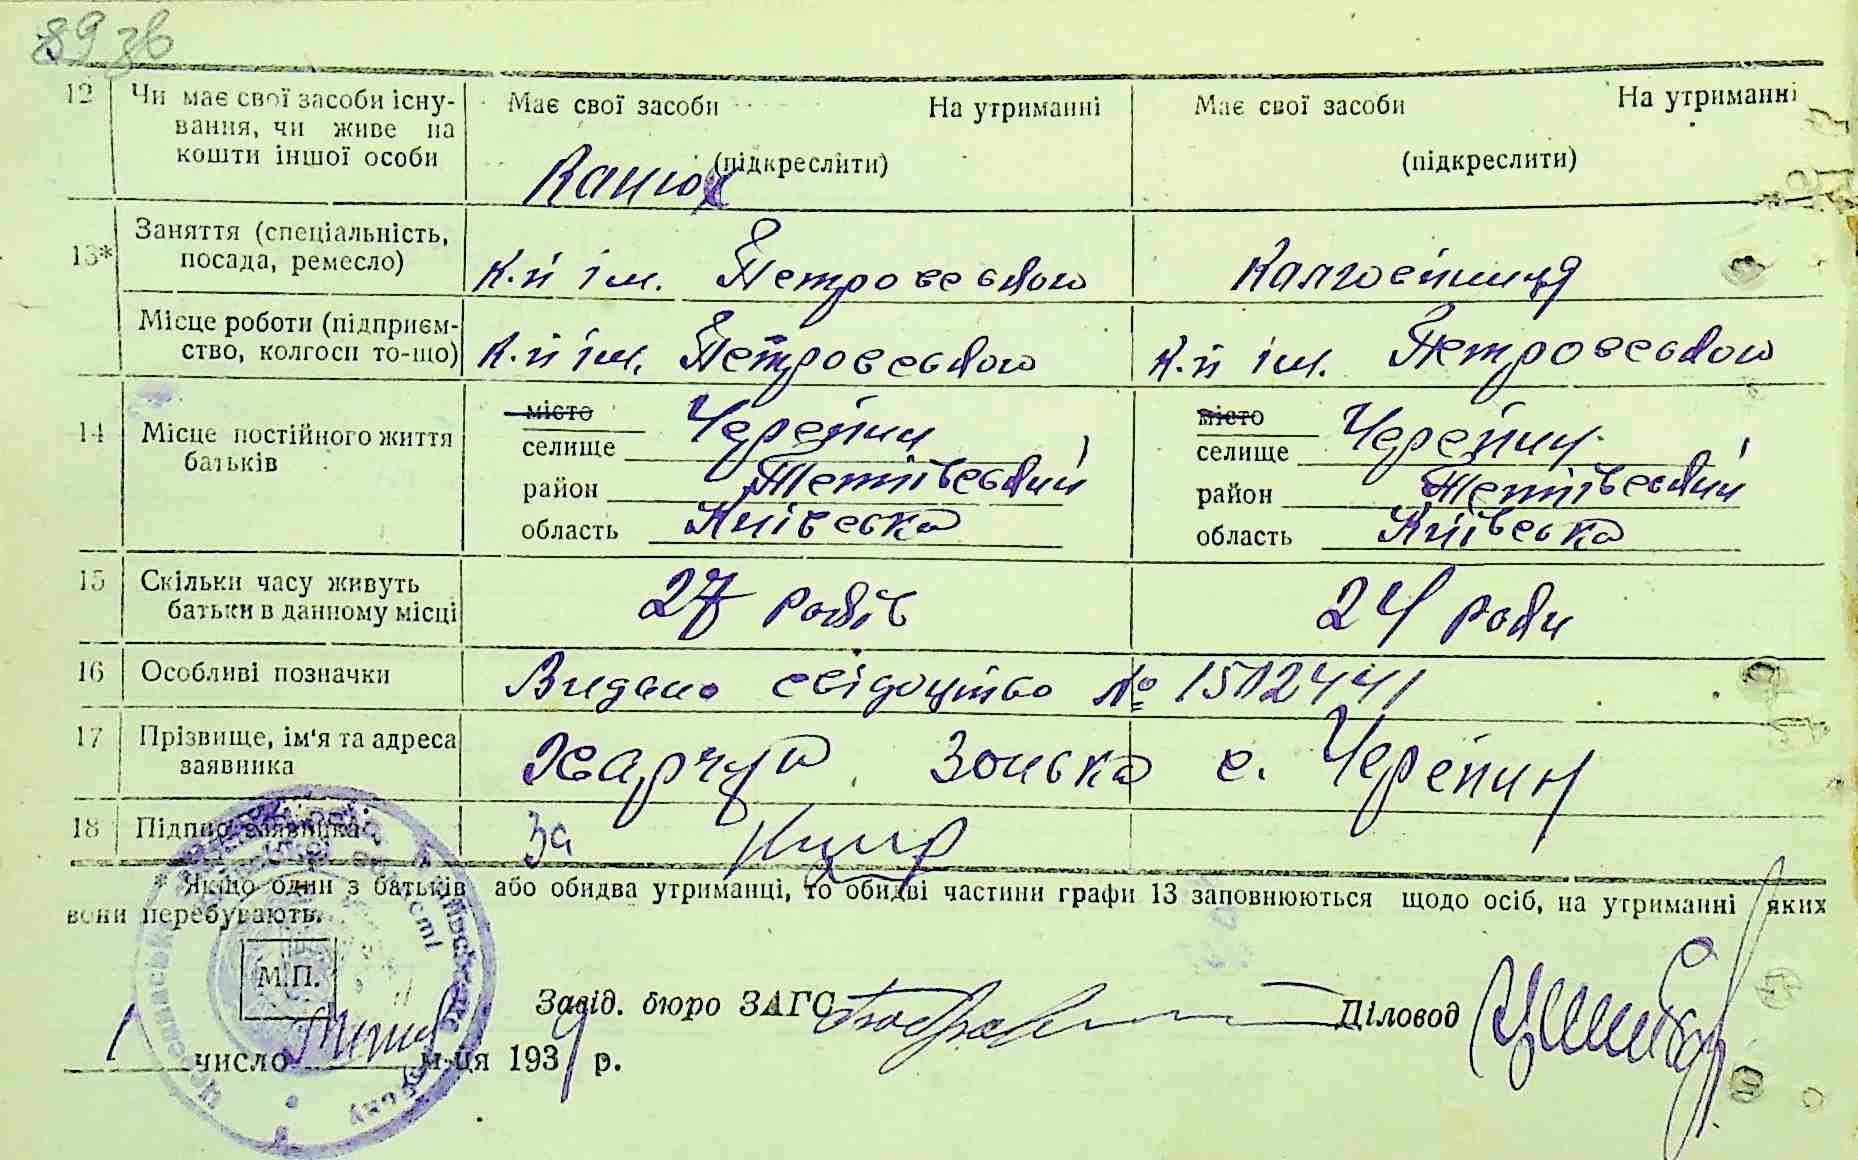 89 зв
12 Чи має свої засоби існу- Має свої засоби На утриманні Має свої засоби На утриманні
вання, чи живе на
кошти іншої особи (підкреслити) (підкреслити)
Конюх
13* Заняття (спеціальність,
посада, ремесло) к-п ім. Петровського Колгоспниця
Місце роботи (підприєм-
ство, колгосп то-що) к-п ім. Петровського к-п ім. Петровського
14 Місце постійного життя
батьків
місто місто
селище Черепин селище Черепин
район Тетіївський район Тетіївський
область Київська область Київська
15 Скільки часу живуть
батьки в данному місці 27 років 24 роки
16 Особливі позначки Видано свідоцтво № 1512441
17 Прізвище, ім'я та адреса
заявника Харчук Зонька с. Черепин
18 Підпис заявника За
* Якщо один з батьків або обидва утриманці, то обидві частини графи 13 заповнюються щодо осіб, на утриманні яких
вони перебувають.
М.П.
Завід. бюро ЗАГС Діловод
1 число м-ця 1939 р.